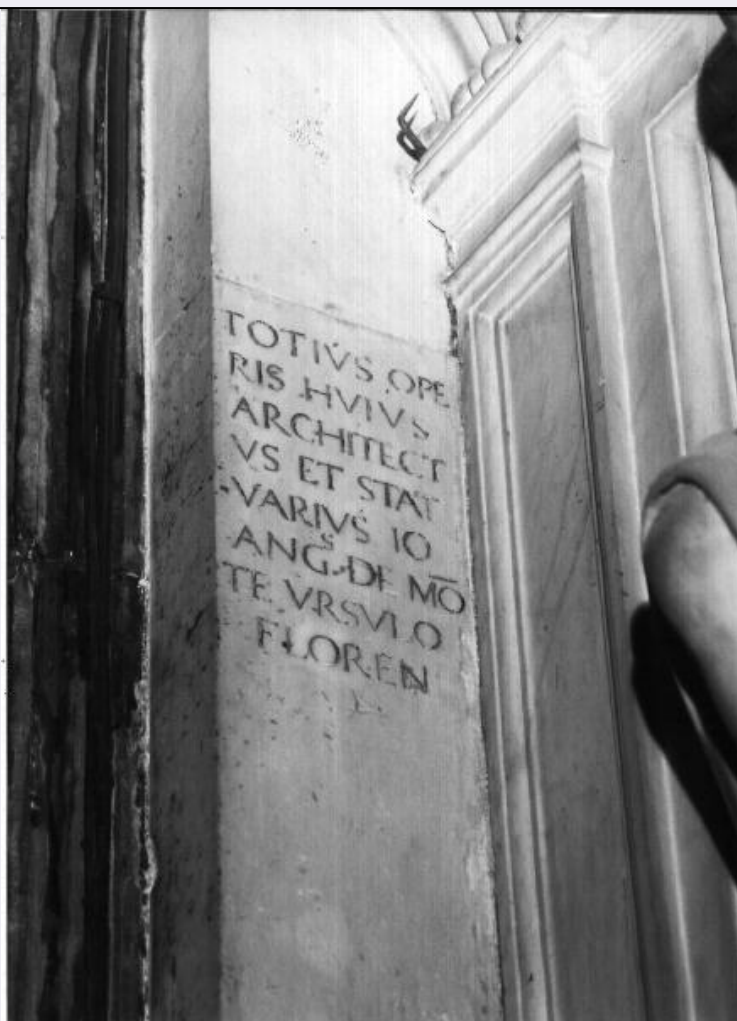 TOTIVS OPE
RIS HVIVS
ARCHITECT
VS ET STAT
VARIVS IO
ANG.S DE MŌ
TE VRSVLO
FLOREN